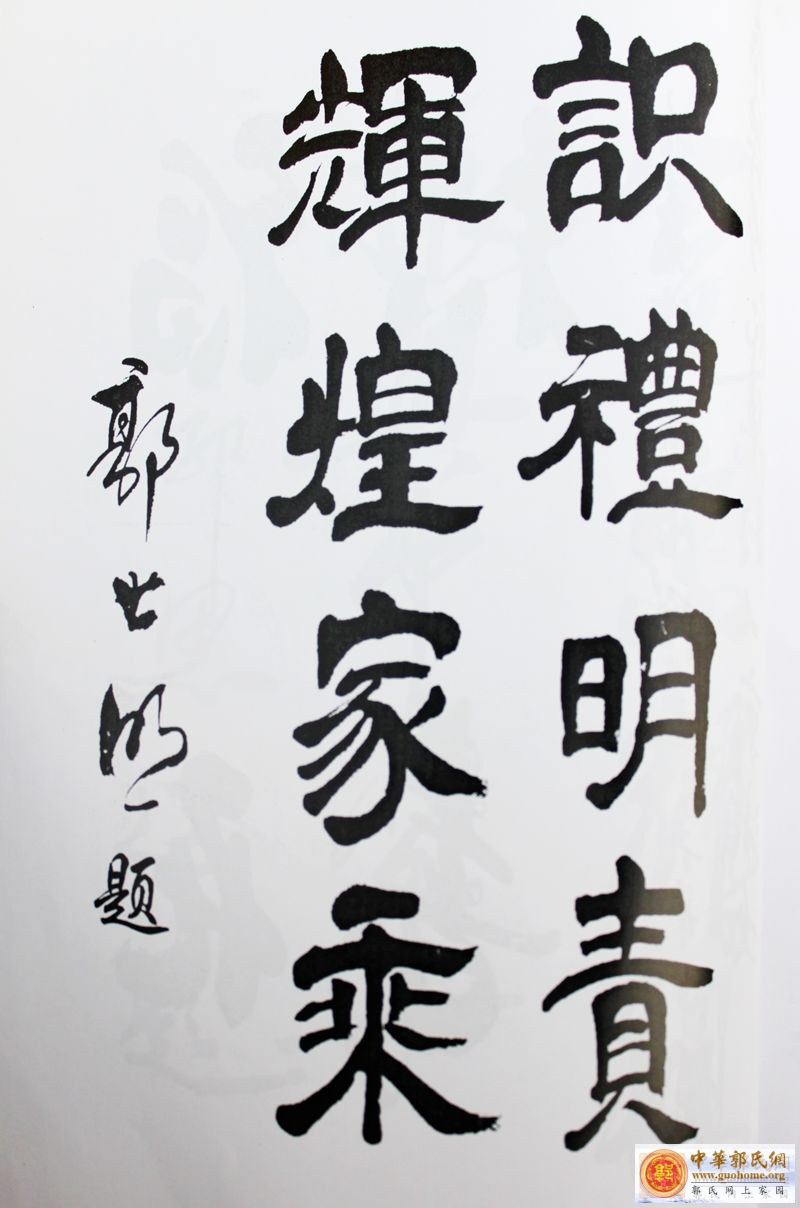 识禮明責
輝煌家乘
郭世题
中華郭氏網
www.guohome.org
郭氏网上家园